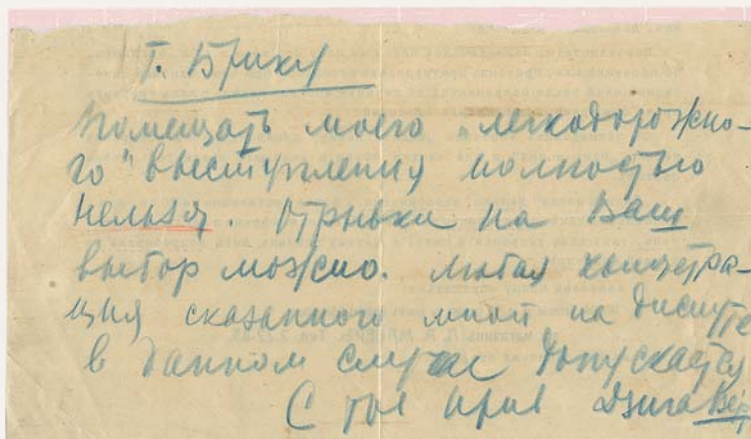 Т. Брику
Помещать моего „легкодорожно-
го" выступления полностью
нельзя. Отрывки на Ваш
выбор можно. Любая концентра-
ция сказанного мной на диспуте
в данном случае допускается
С тов прив Дзига Верт